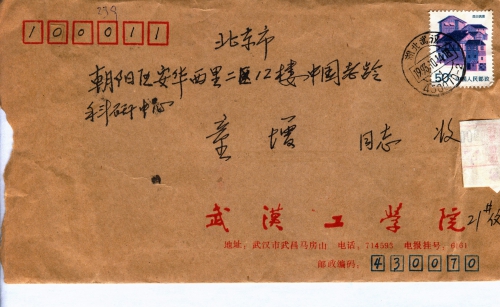 100011
北京市
朝阳区安华西里二区12楼中国老龄
科研中心
童 同志 收
50 中国人民邮政
武漢工学院
地址：武汉市武昌马房山 电话：714595 电报挂号：6101
邮政编码：430070